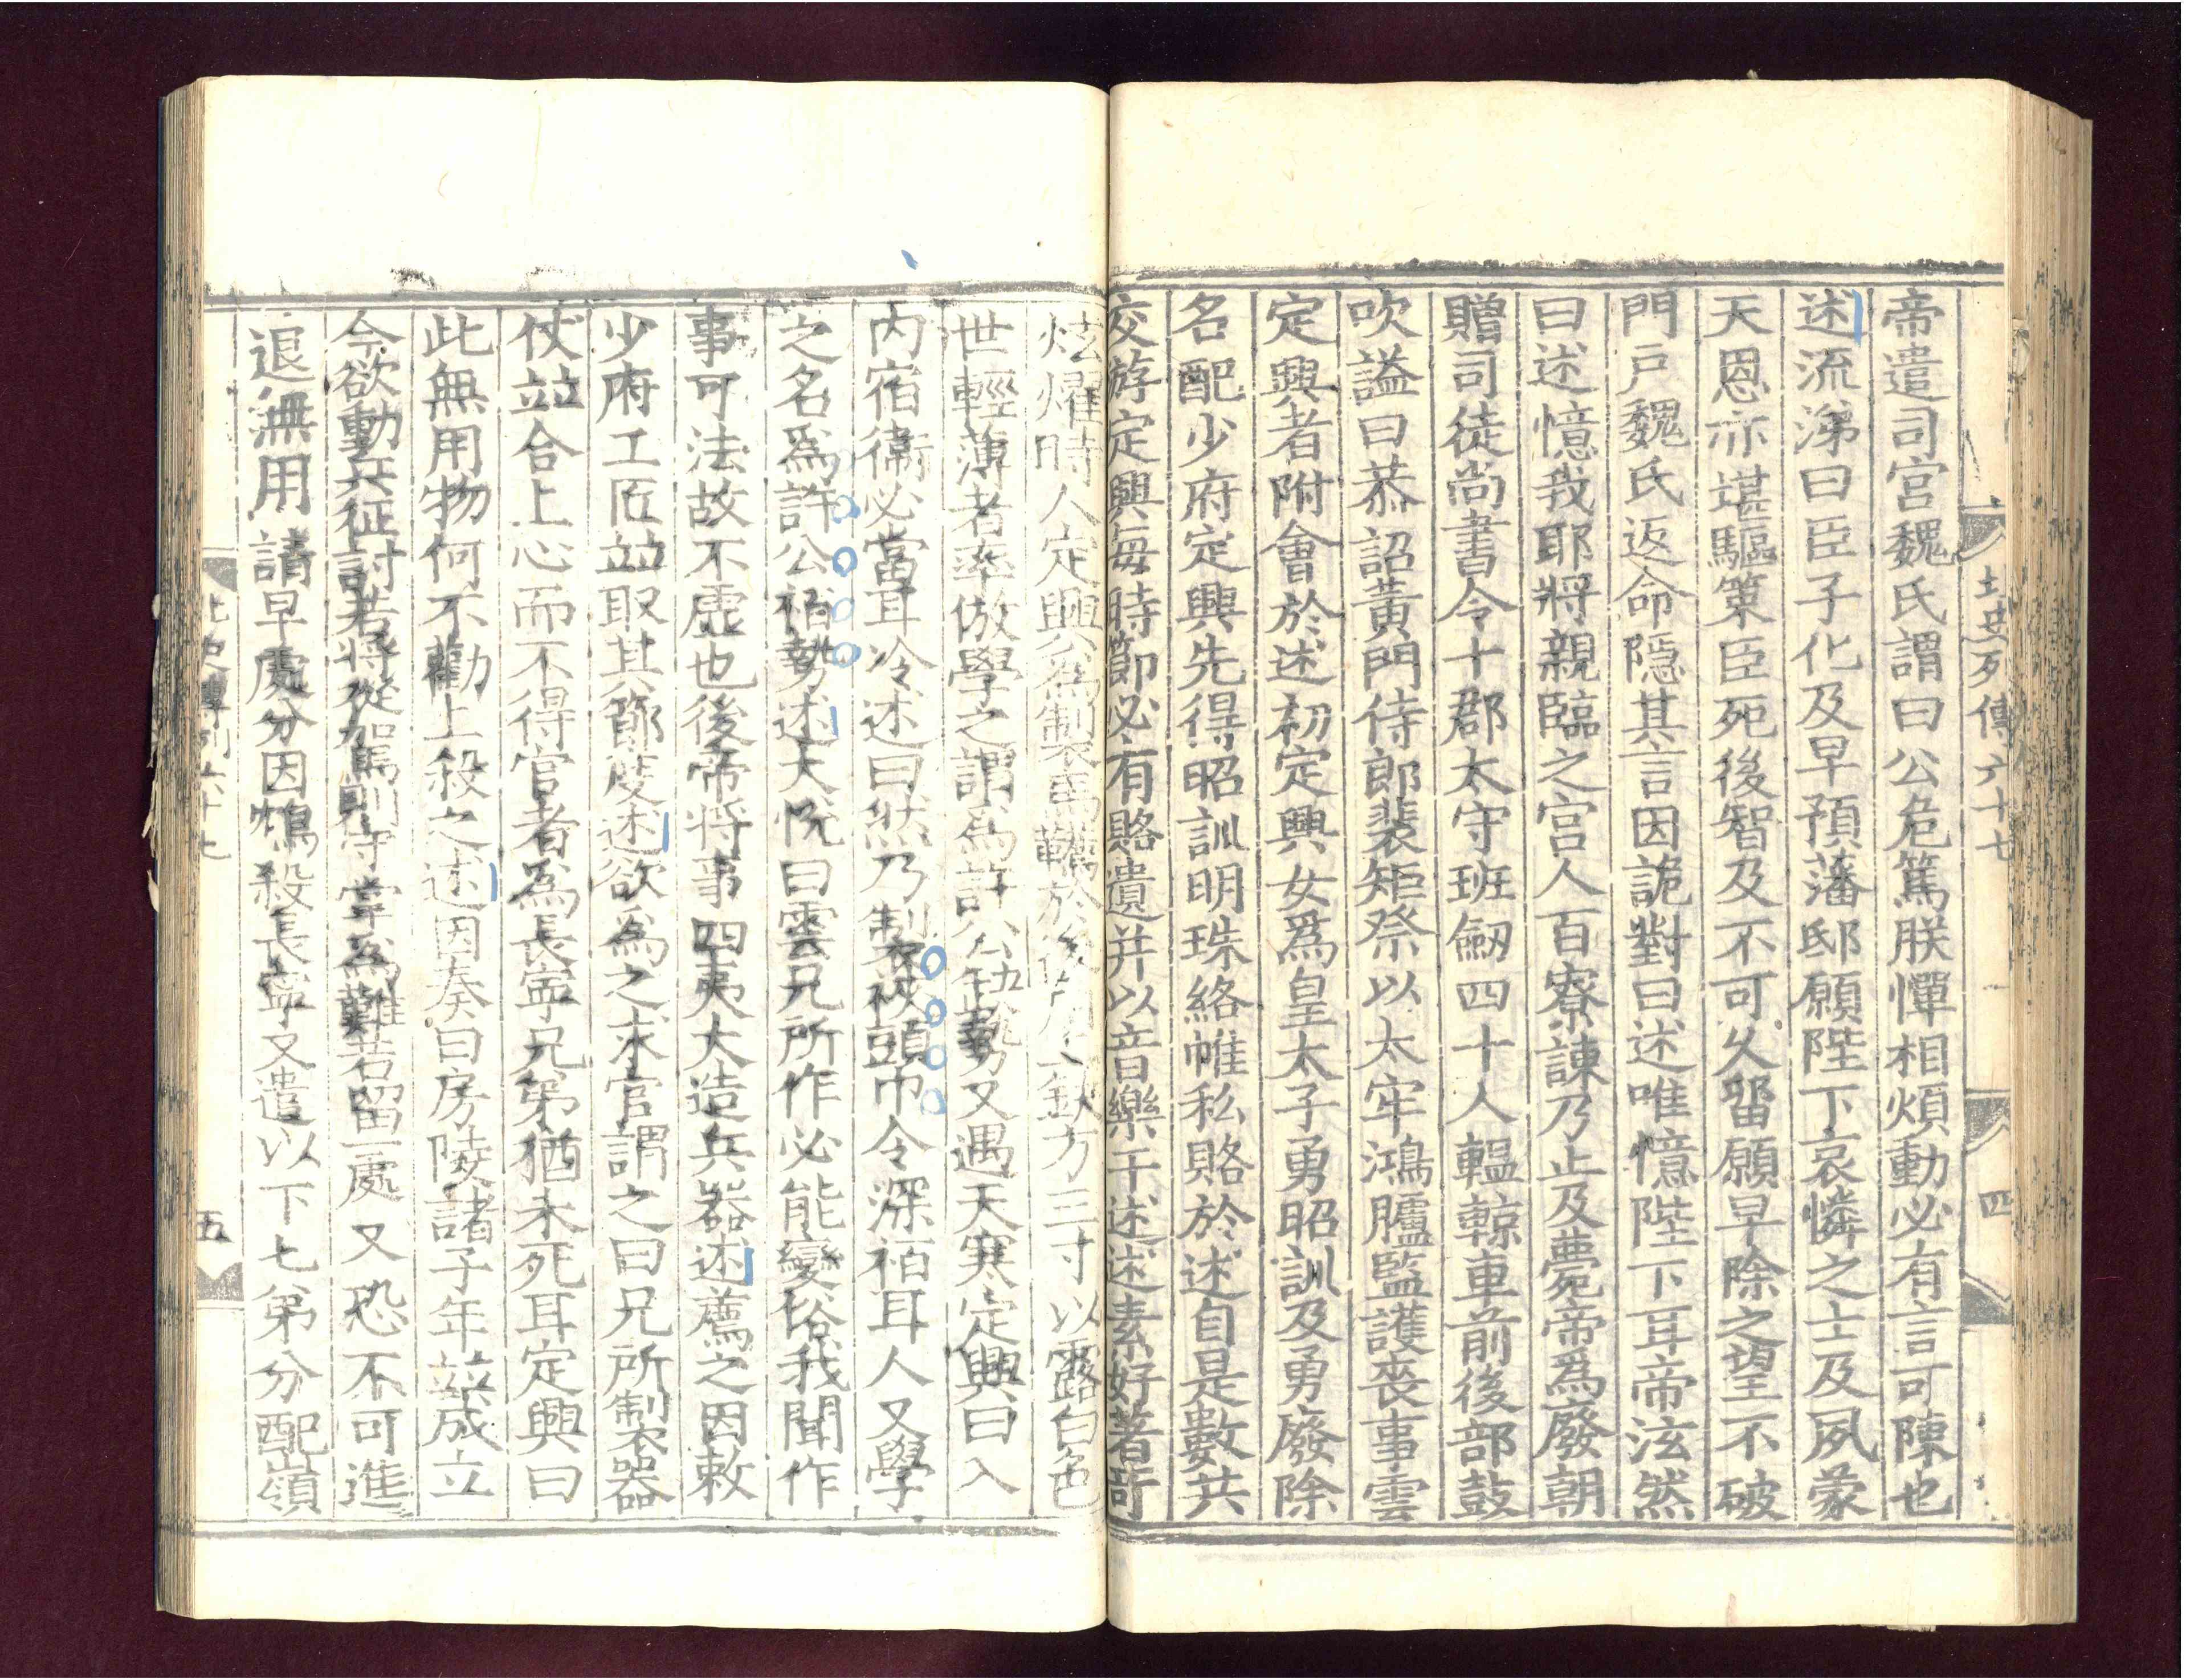 北史列傳六十七
四
帝遣司宫魏氏謂曰公危篤朕憚相煩動必有言可陳也
述流涕曰臣子化及早預藩邸願陛下哀憐之士及夙蒙
天恩亦堪驅策臣死後智及不可久留願早除之望不破
門戸魏氏返命隠其言因詭對曰述唯憶陛下耳帝泫然
曰述憶我耶將親臨之宫人百寮諫乃止及薨帝爲廢朝
贈司徒尚書令十郡太守班劒四十人轀輬車前後部鼓
吹謚曰恭詔黃門侍郎裴矩祭以太牢鴻臚監護喪事雲
定興者附會於述初定興女爲皇太子勇昭訓及勇廢除
名配少府定興先得昭訓明珠絡帷私賂於述自是數共
交游定興每時節必有賂遺并以音樂干述述素好著奇
炫燿時人定興爲制馬韉於後角上缺方三寸以露白色
世輕薄者率倣學之謂爲許公缺勢又遇天寒定興曰入
内宿衞必當耳冷述曰然乃製裌頭巾令深袹耳人又學
之名爲許公袹勢述大悅曰雲兄所作必能變俗我聞作
事可法故不虚也後帝將事四夷大造兵器述薦之因敕
少府工匠並取其節度述欲爲之求官謂之曰兄所制器
仗並合上心而不得官者爲長寧兄弟猶未死耳定興曰
此無用物何不勸上殺之述因奏曰房陵諸子年並成立
今欲動兵征討若將從駕則守掌爲難若留一處又恐不可進
退無用請早處分因鴆殺長寧又遣以下七弟分配嶺
北史列傳六十七
五